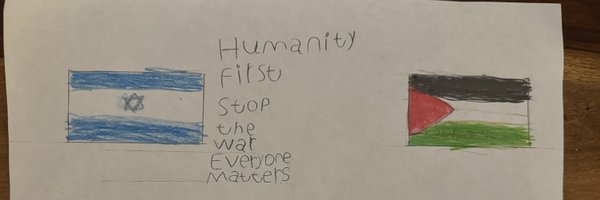 Humanity
First
Stop
the
war
Everyone
Matters